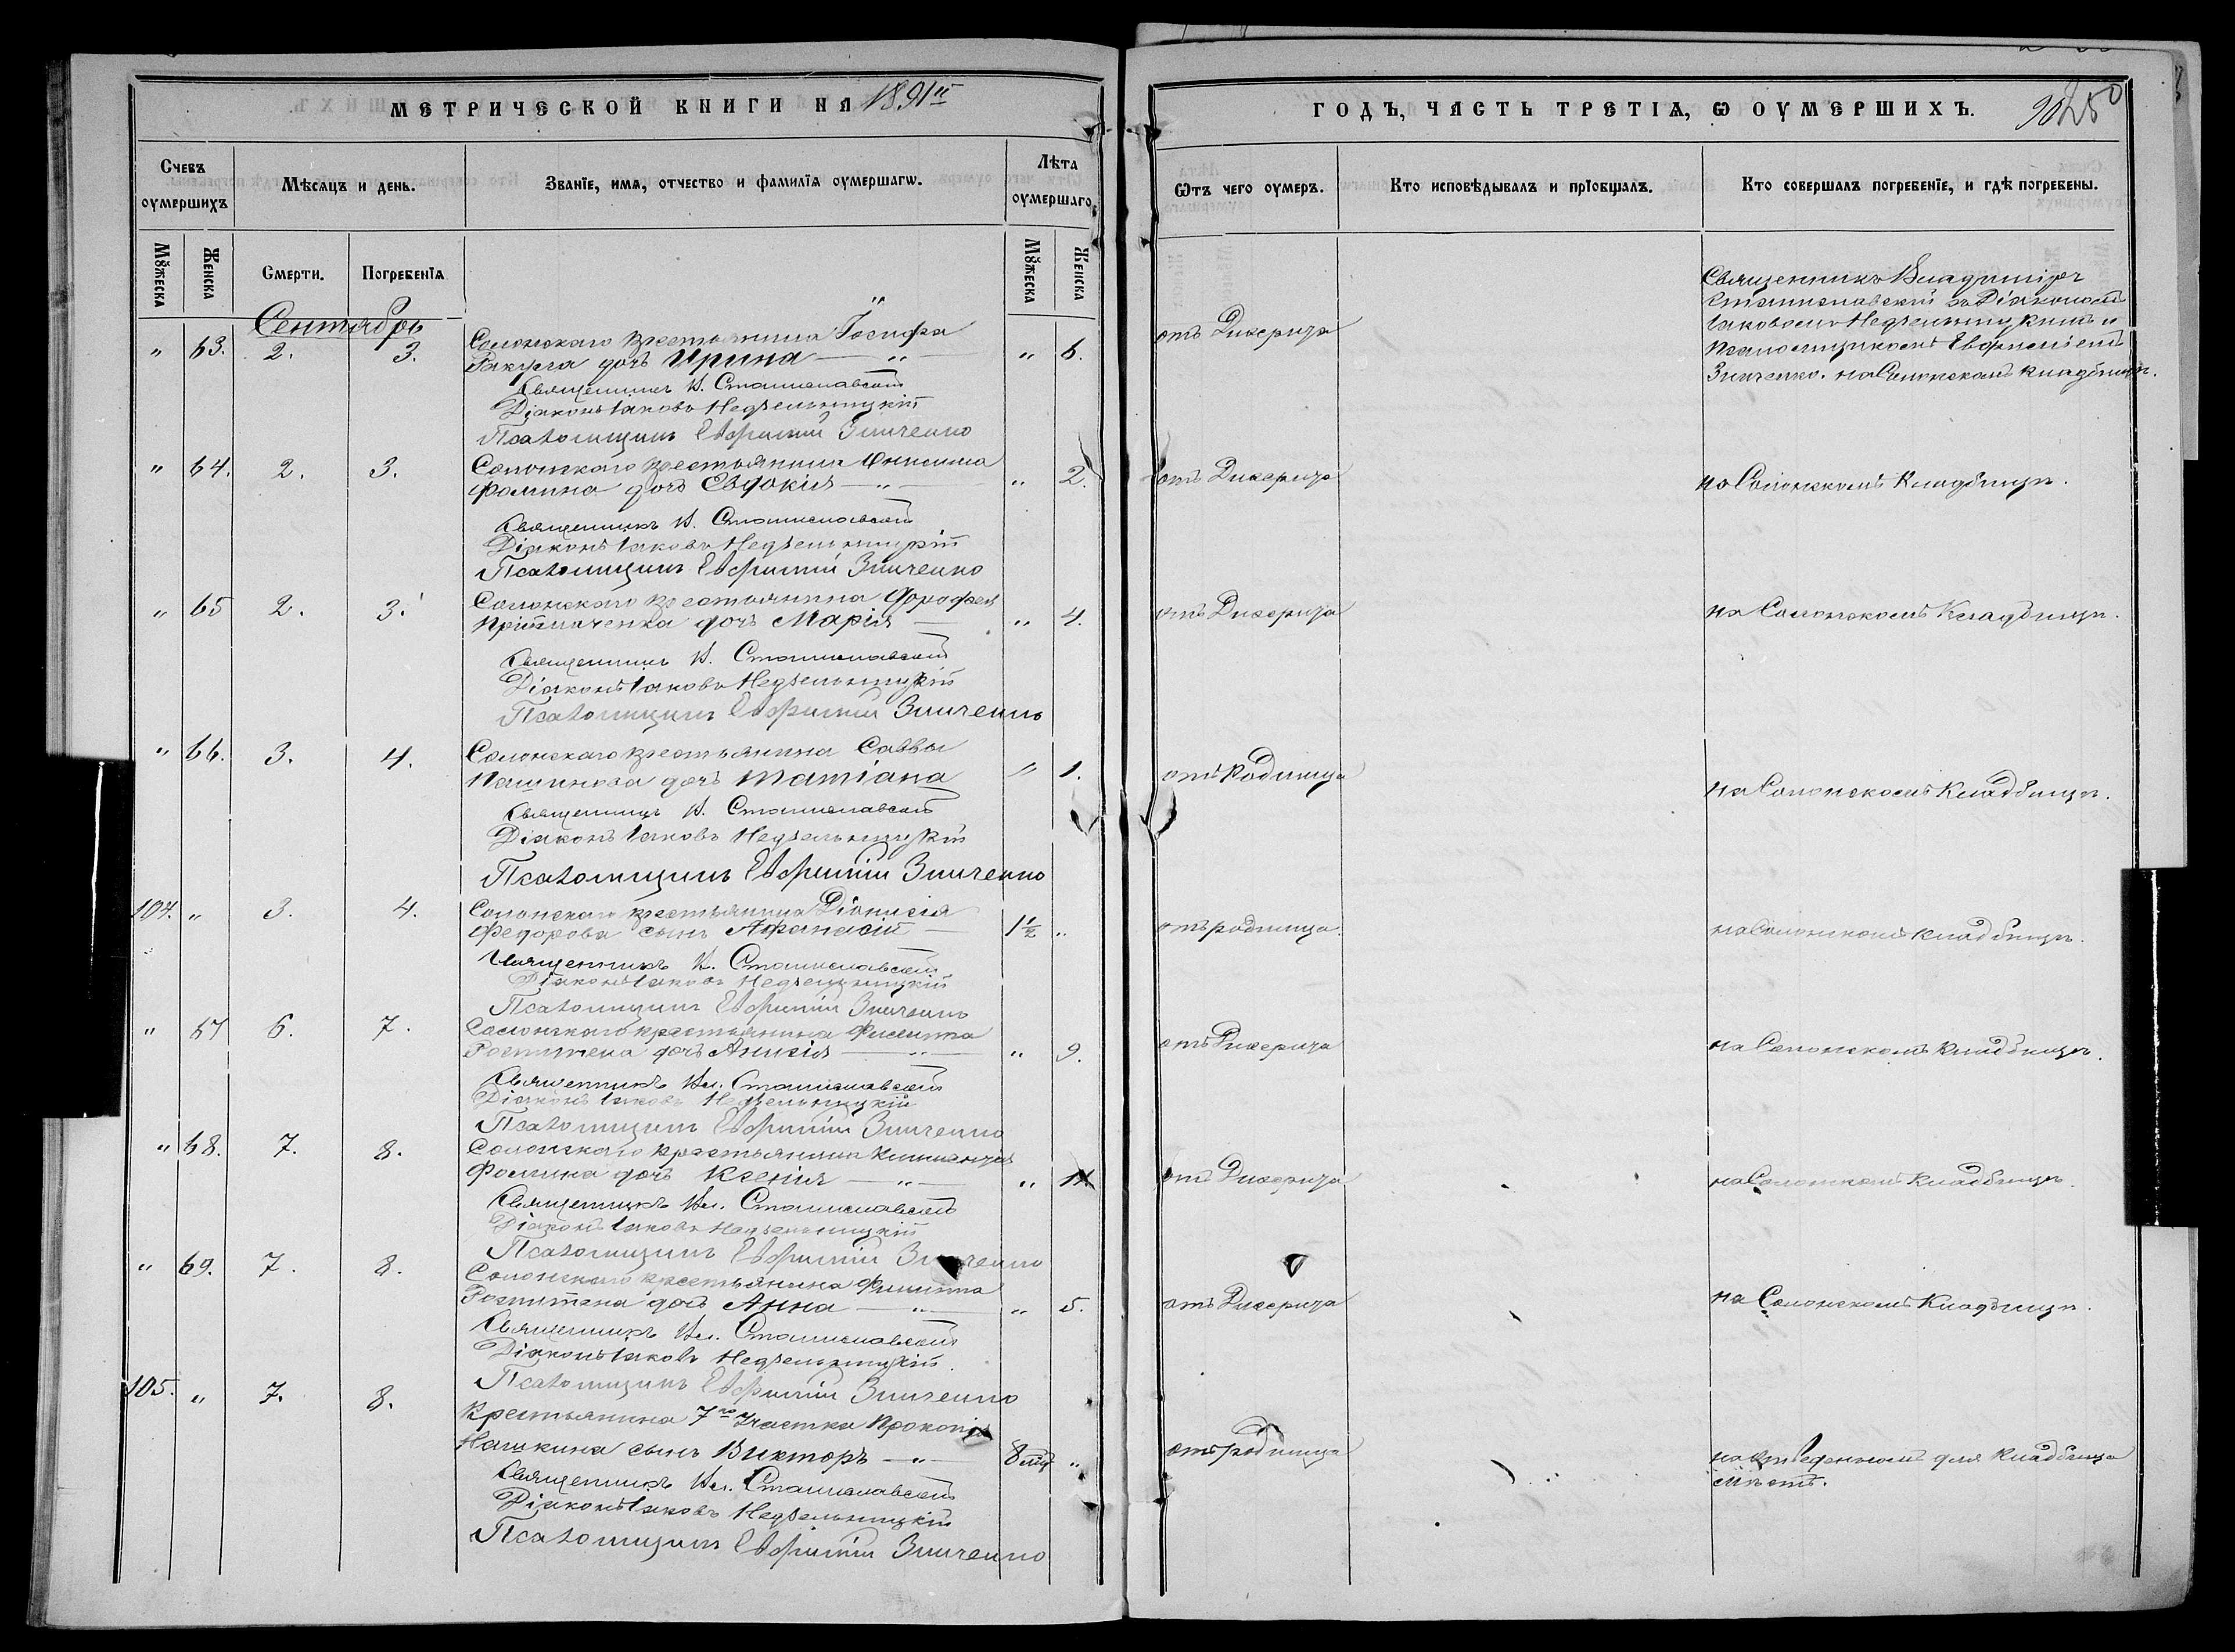 МЕТРИЧЕСКОЙ КНИГИ НА 1891й
ГОДЪ, ЧАСТЬ ТРЕТІѦ, Ѡ ОУМЕРШИХЪ.
Счевъ оумершихъ
Мѣсяцъ и день.
Званїе, имѧ, отчество и фамилїѧ оумершагѡ.
Лѣта оумершаго
Ѿтъ чего оумеръ.
Кто исповѣдывалъ и прїобщалъ.
Кто совершалъ погребенїе, и гдѣ погребены.
Мꙋжеска
Женска
Смерти.
Погребенїѧ
Мꙋжеска
Женска
Сентябрь
" 63. 2. 3. Солонскаго крестьянина Іосифа
Ракула дочь Ирина — " — " 6. отъ Дисерита
Священникъ Владиміръ
Станиславскій съ Діакономъ
Іаковомъ Недзельницкимъ и
Псаломщикомъ Евфиміемъ
Зинченко. на Солонскомъ кладбищѣ.
Священникъ В. Станиславскій
Діаконъ Іаковъ Недзельницкій
Псаломщикъ Евфимій Зинченко
" 64. 2. 3. Солонскаго крестьянина Онисима
Фомина дочь Евдокія — " — " 2. отъ Дисерита на Солонскомъ Кладбищѣ.
Священникъ В. Станиславскій
Діаконъ Іаковъ Недзельницкій
Псаломщикъ Евфимій Зинченко
" 65 2. 3. Солонскаго крестьянина Дорофея
дочь Марія — " 4. отъ Дисерита на Солонскомъ Кладбищѣ.
Священникъ В. Станиславскій
Діаконъ Іаковъ Недзельницкій
Псаломщикъ Евфимій Зинченко
" 66. 3. 4. Солонскаго крестьянина Саввы
Пашинова дочь Татіана " 1. отъ Родимца на Солонскомъ Кладбищѣ.
Священникъ В. Станиславскій
Діаконъ Іаковъ Недзельницкій
Псаломщикъ Евфимій Зинченко
104. " 3. 4. Солонскаго крестьянина Діонисія
Федорова сынъ Афанасій — 1½ " отъ родимца. на Солонскомъ кладбищѣ.
Священникъ В. Станиславскій
Діаконъ Іаковъ Недзельницкій
Псаломщикъ Евфимій Зинченко
" 67 6. 7. Солонскаго крестьянина Филиппа
дочь Анисія — " — " 9. отъ Дисерита на Солонскомъ Кладбищѣ.
Священникъ Вл. Станиславскій
Діаконъ Іаковъ Недзельницкій
Псаломщикъ Евфимій Зинченко
" 68. 7. 8. Солонскаго крестьянина
Фомина дочь Ксенія — " — " отъ Дисерита на Солонскомъ Кладбищѣ.
Священникъ Вл. Станиславскій
Діаконъ Іаковъ Недзельницкій
Псаломщикъ Евфимій Зинченко
" 69. 7. 8. Солонскаго крестьянина Филиппа
дочь Анна — " — " 5. отъ Дисерита на Солонскомъ Кладбищѣ.
Священникъ Вл. Станиславскій
Діаконъ Іаковъ Недзельницкій.
Псаломщикъ Евфимій Зинченко
105. " 7. 8. Крестьянина 7го Участка Прокопія
Нашкина сынъ Викторъ — " — 8 мц " отъ родимца на отведенномъ для Кладбища
мѣстѣ.
Священникъ Вл. Станиславскій
Діаконъ Іаковъ Недзельницкій
Псаломщикъ Евфимій Зинченко